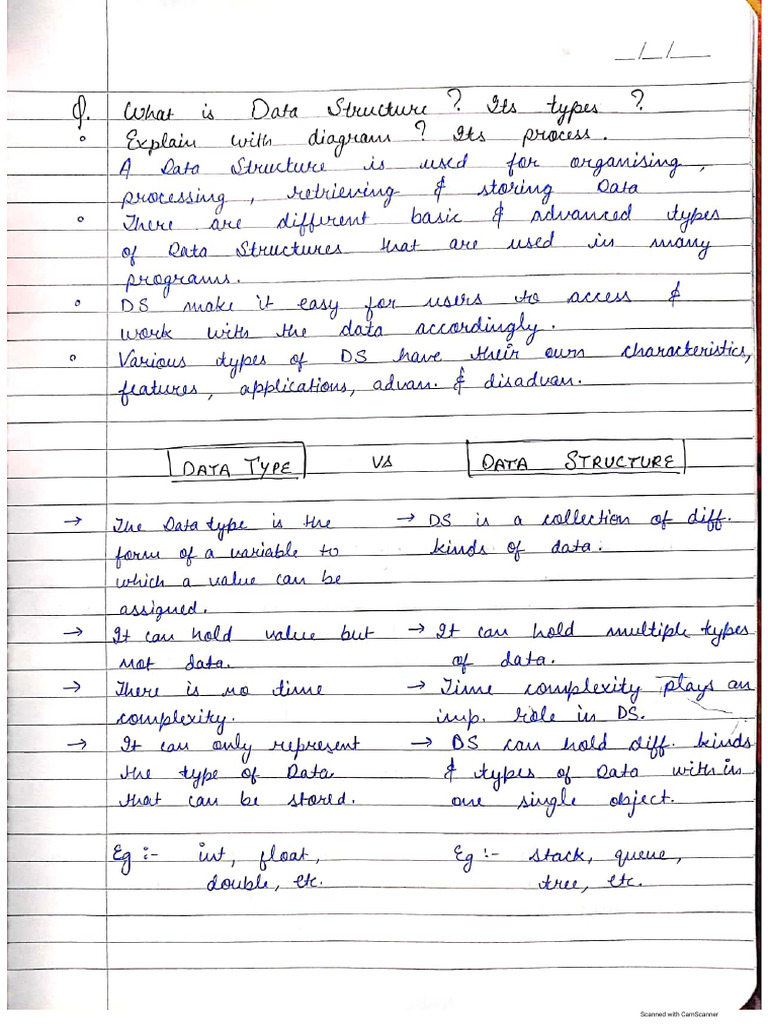 _/_/_
Q. What is Data Structure? Its types?
Explain with diagram? Its process.
A Data Structure is used for organising,
processing, retrieving & storing Data
There are different basic & advanced types
of Data Structures that are used in many
programs.
DS make it easy for users to access &
work with the data accordingly.
Various types of DS have their own characteristics,
features, applications, advan. & disadvan.
DATA TYPE vs DATA STRUCTURE
→ The Data type is the → DS is a collection of diff.
form of a variable to kinds of data.
which a value can be
assigned.
→ It can hold value but → It can hold multiple types
not data. of data.
→ There is no time → Time complexity plays an
complexity. imp. role in DS.
→ It can only represent → DS can hold diff. kinds
the type of Data & types of Data within
that can be stored. one single object.
Eg :- int, float, Eg :- stack, queue,
double, etc. tree, etc.
Scanned with CamScanner